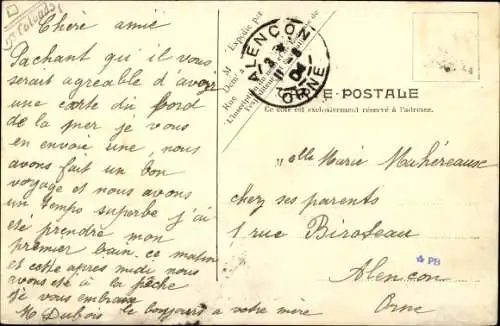 D
(Calvados)
Chère amie
Sachant qu'il vous
serait agreable d'avoir
une carte du bord
de la mer je vous
en envoie une, nous
avons fait un bon
voyage et nous avons
un temps superbe j'ai
été prendre mon
premier bain ce matin
et cette apres midi nous
avons été à la pêche
Je vous embrasse
M Dubois le bonjours a votre mère
Expédié par
M
Demt à
Rue
ALENÇON
ORNE
8
04
CARTE-POSTALE
Ce côté est exclusivement réservé à l'adresse.
Melle Marie Mahéreause
chez ses parents
1 rue Biroteau
Alencon
Orne
PB